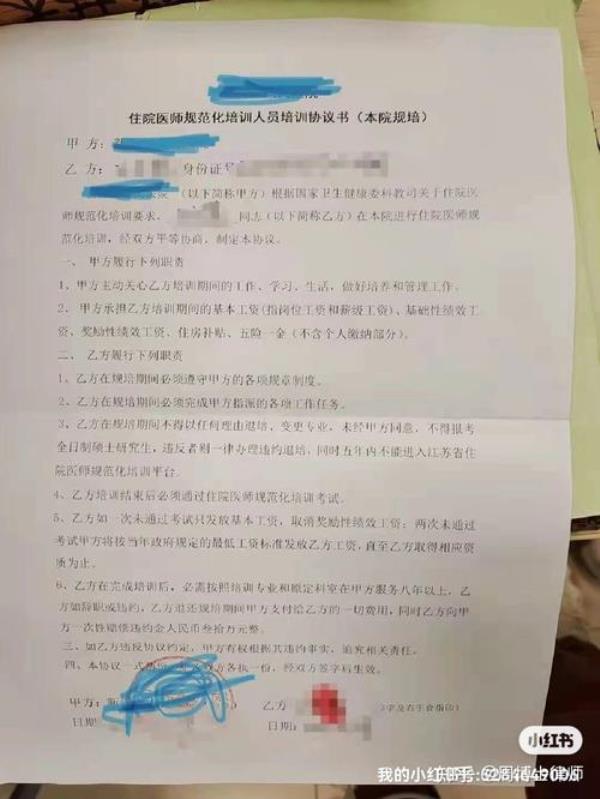 住院医师规范化培训人员培训协议书（本院规培）
甲 方：
乙 方： 身份证号
（以下简称甲方）根据国家卫生健康委科教司关于住院医
师规范化培训要求， 同志（以下简称乙方）在本院进行住院医师规
范化培训，经双方平等协商，制定本协议。
一、 甲方履行下列职责
1、甲方主动关心乙方培训期间的工作、学习、生活，做好培养和管理工作。
2、 甲方承担乙方培训期间的基本工资(指岗位工资和薪级工资)、基础性绩效工
资、奖励性绩效工资、住房补贴、五险一金（不含个人缴纳部分）。
二、乙方履行下列职责
1、乙方在规培期间必须遵守甲方的各项规章制度。
2、乙方在规培期间必须完成甲方指派的各项工作任务。
3、乙方在规培期间不得以任何理由退培、变更专业，未经甲方同意，不得报考
全日制硕士研究生，违反者则一律办理违约退培，同时五年内不能进入江苏省住
院医师规范化培训平台。
4、乙方培训结束后必须通过住院医师规范化培训考试。
5、乙方如一次未通过考试只发放基本工资，取消奖励性绩效工资；两次未通过
考试甲方将按当年政府规定的最低工资标准发放乙方工资，直至乙方取得相应资
质为止。
6、乙方在完成培训后，必需按照培训专业和原定科室在甲方服务八年以上，乙
方如辞职或违约，乙方退还规培期间甲方支付给乙方的一切费用，同时乙方向甲
方一次性赔偿违约金人民币叁拾万元整。
三、如乙方违反协议约定，甲方有权根据其违约事实，追究相关责任。
四、本协议一式 方各执一份，经双方签字后生效。
甲方： 乙方 （字及右手食指印）
日期： 日期：
小红书
我的小红书号:
知乎